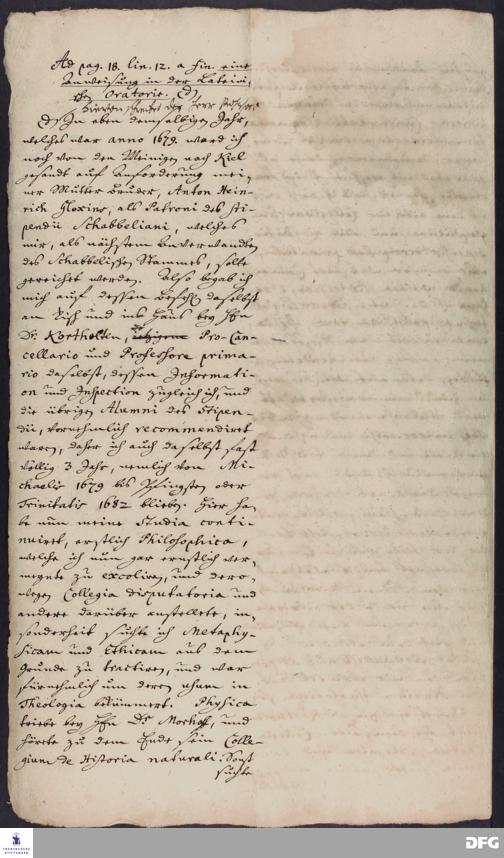 Ad pag. 18. lin. 12. a fin. eine
Anweisung in der Lateini,
schen Oratorie. (d)
(d) In eben demselbigen Jahr,
welches war anno 1679. ward ich
noch von den Meinigen nach Kiel
gesandt auf Anforderung mei-
ner Mutter Bruder, Anton Hein-
rich Gloxins, als Patroni des sti-
pendii Schabbeliani, welches
mir, als nächstem Anverwandten
des Schabbelischen Stammes, solte
gereichet werden. Also begab ich
mich auf dessen Befehl daselbst
an Tisch und ins Hauß bey Hrn
Dr. Kortholten, Pro-Can-
cellario und Professore prima-
rio daselbst, dessen Informati-
on und Inspection zugleich ich, und
die übrigen Alumni des Stipen-
dii, vornehmlich recommendiret
waren, daher ich auch daselbst fast
völlig 3 Jahr, nemlich von Mi-
chaelis 1679 bis Pfingsten oder
Trinitatis 1682 bliebe. Hier ha-
be nun meine Studia conti-
nuiret, erstlich Philosophica,
welche ich nun gar ernstlich ver-
meynte zu excoliren, und dero-
wegen Collegia disputatoria und
andere darüber anstellete, in-
sonderheit suchte ich Metaphy-
sicam und Ethicam aus dem
Grunde zu tractiren, und war
fürnehmlich um deren usum in
Theologia bekümmert. Physica
triebe bey Hrn Dr Morhoff, und
hörete zu dem Ende sein Colle-
gium de Historia naturali: Sonst
suchte
TRANSFER
DFG